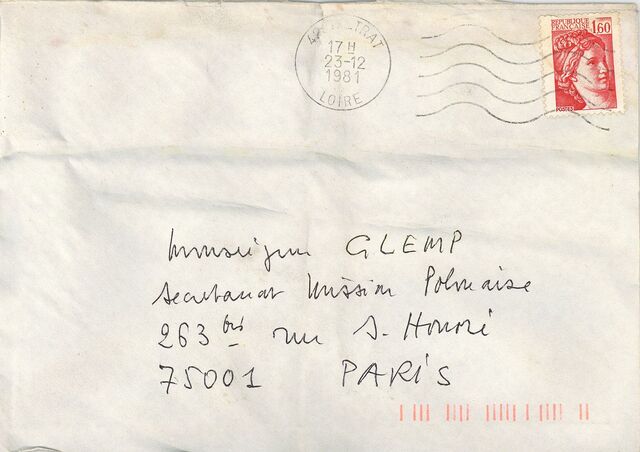 17 H
23-12
1981
LOIRE
REPUBLIQUE
FRANÇAISE 1,60
Monseigneur GLEMP
Secretariat Mission Polonaise
263 bis rue S. Honoré
75001 PARIS